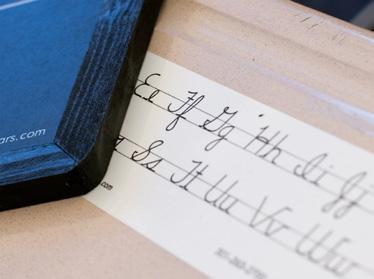 ars.com
Ee Ff Gg Hh Ii Jj
Ss Tt Uu Vv Ww
.com